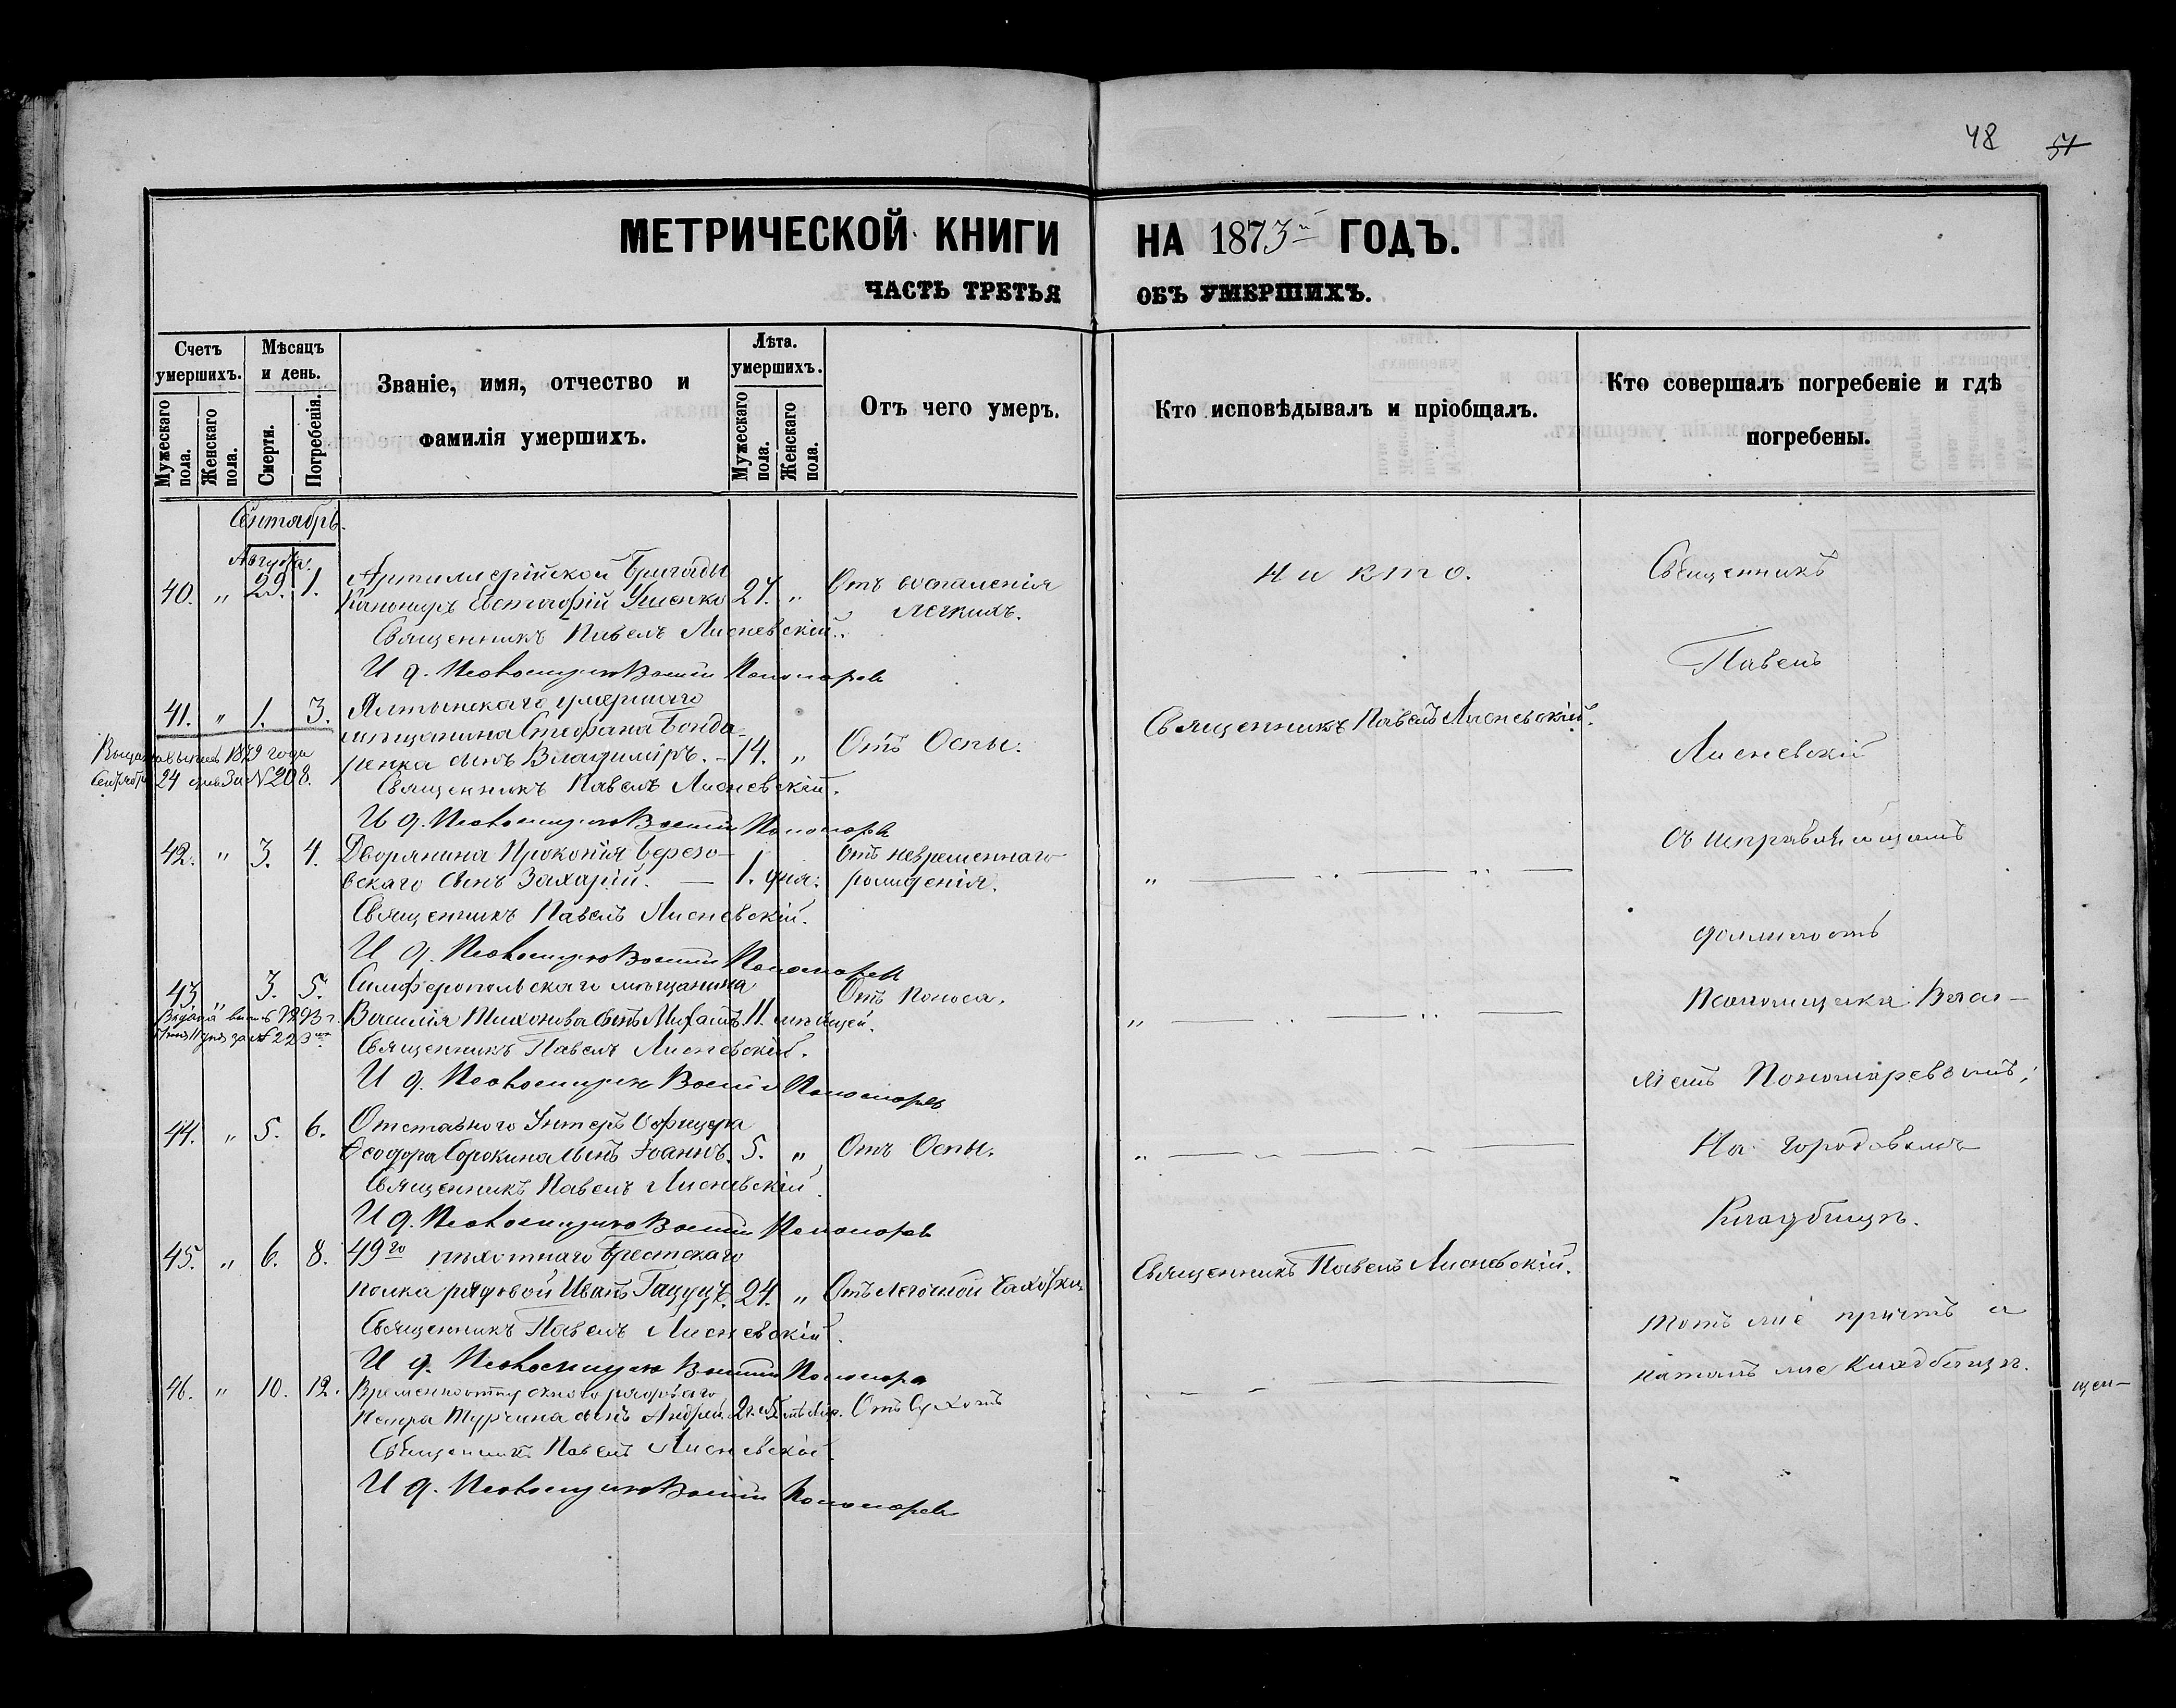 48 51
МЕТРИЧЕСКОЙ КНИГИ НА 1873й ГОДЪ.
ЧАСТЬ ТРЕТЬЯ ОБЪ УМЕРШИХЪ.
Счетъ умершихъ.
Мужескаго пола.
Женскаго пола.
Мѣсяцъ и день.
Смерти.
Погребенія.
Званіе, имя, отчество и
фамилія умершихъ.
Лѣта. умершихъ.
Мужескаго пола.
Женскаго пола.
Отъ чего умеръ.
Кто исповѣдывалъ и пріобщалъ.
Кто совершалъ погребеніе и гдѣ
погребены.
Сентябрь.
Августа.
40. " 29. 1. Артиллерійской Бригады
Канониръ Евстафій Ященко 27. " Отъ воспаленія
легкихъ.
Никто.
Священникъ Павелъ Лисневскій.
И д. Псаломщика Пономаревъ
41. " 1. 3. Ялтинскаго умершаго
мѣщанина Стефана Бонда-
ренка сынъ Владиміръ. 14. " Отъ Оспы.
Священникъ Павелъ Лисневскій.
1879 года
24 дня за № 208.
Священникъ Павелъ Лисневскій.
И д. Псаломщика Пономаревъ
42. " 3. 4. Дворянина Прокопія Березо-
вскаго сынъ Захарій. — 1. дня. Отъ невременнаго
рожденія.
Священникъ Павелъ Лисневскій.
И д. Псаломщика Пономаревъ
43. " 3. 5. Симферопольскаго мѣщанина
Василія Тихонова сынъ Михаилъ. 11. мѣсяцей. Отъ Поноса.
за № 223
Священникъ Павелъ Лисневскій.
И д. Псаломщика Пономаревъ
44. " 5. 6. Отставного Унтеръ Офицера
Ѳеодора Сорокина сынъ Іоаннъ. 5. " Отъ Оспы.
Священникъ Павелъ Лисневскій.
И д. Псаломщика Пономаревъ
45. " 6. 8. 49го пѣхотнаго Брестскаго
полка рядовой Иванъ 24. " Отъ легочной Чахотки.
Священникъ Павелъ Лисневскій.
Священникъ Павелъ Лисневскій.
И д. Псаломщика Пономаревъ
46. " 10. 12. Временно
Петра Турчина сынъ Андрей.
Священникъ Павелъ Лисневскій.
И д. Псаломщика Пономаревъ
Священникъ
Павелъ
Лисневскій
съ исправляющимъ
должность
Псаломщика Васи-
ліемъ Пономаревымъ;
На городовомъ
Кладбищѣ.
Тотъ же причтъ и
на томъ же Кладбищѣ.
щен-